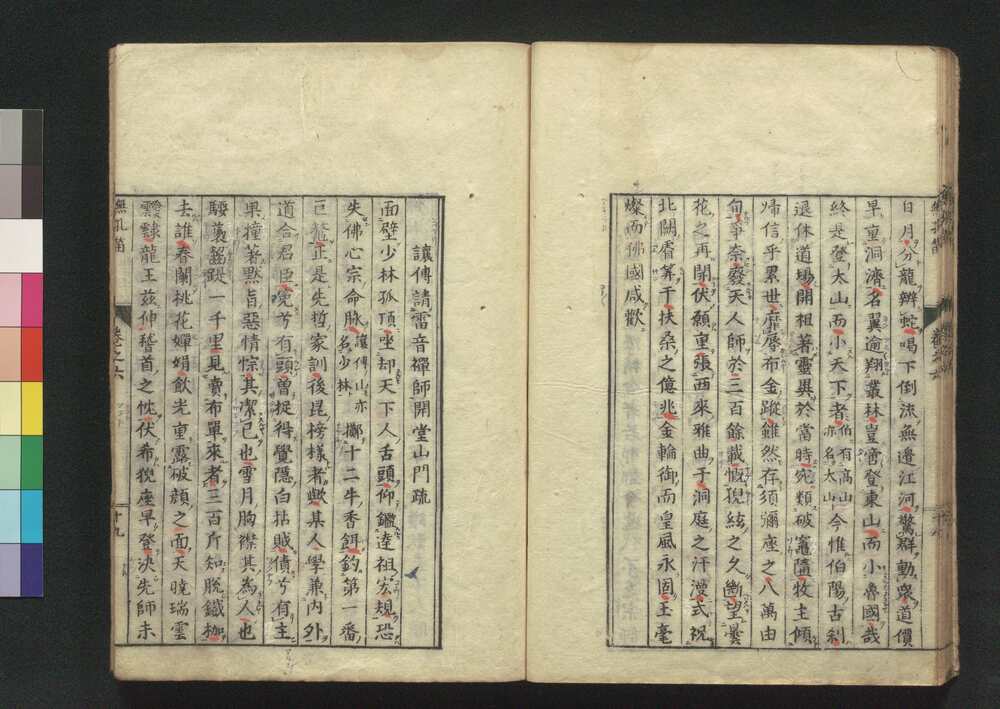 日月分龍辨蛇喝下倒流無邊江河驚群動衆道價
早重洞濟名翼逾翔叢林豈啻登東山而小魯國哉
終是登太山而小天下者伯有高山亦名太山今惟伯陽古刹
退休道場開祖著靈異於當時宛類破竈墮牧主傾
帰信乎累世靡辱布金蹤雖然存須彌座之八萬由
旬爭奈廢天人師於三百餘載慨猊絃之久斷望曇
花之再開伏願重張西來雅曲于洞庭之汗漫式祝
北闕睿筭于扶桑之億兆金輪御而皇風永固玉毫
燦而佛國咸歡
讓傳請雷音禪師開堂山門疏
面壁少林孤頂坐却天下人舌頭仰鑽達祖宏規恐
失佛心宗命脉讓傳山亦名少林擲十二牛香餌釣第一番
巨鼇正是先哲家訓後昆榜樣者歟某人學兼內外
道合君臣兮有頭曾捉得覺隱白拈賊債兮有主
果撞著黙旨惡情悰其潔己也雪月胸襟其為人也
騕褭 一千里見賣布單來者三百所知脫鐵枷
去誰春闌桃花嬋娟飲光重露破顔之面天曉瑞雲
靉靆龍王玆伸稽首之忱伏希猊座早登决先師未
無孔笛
卷之六
十九